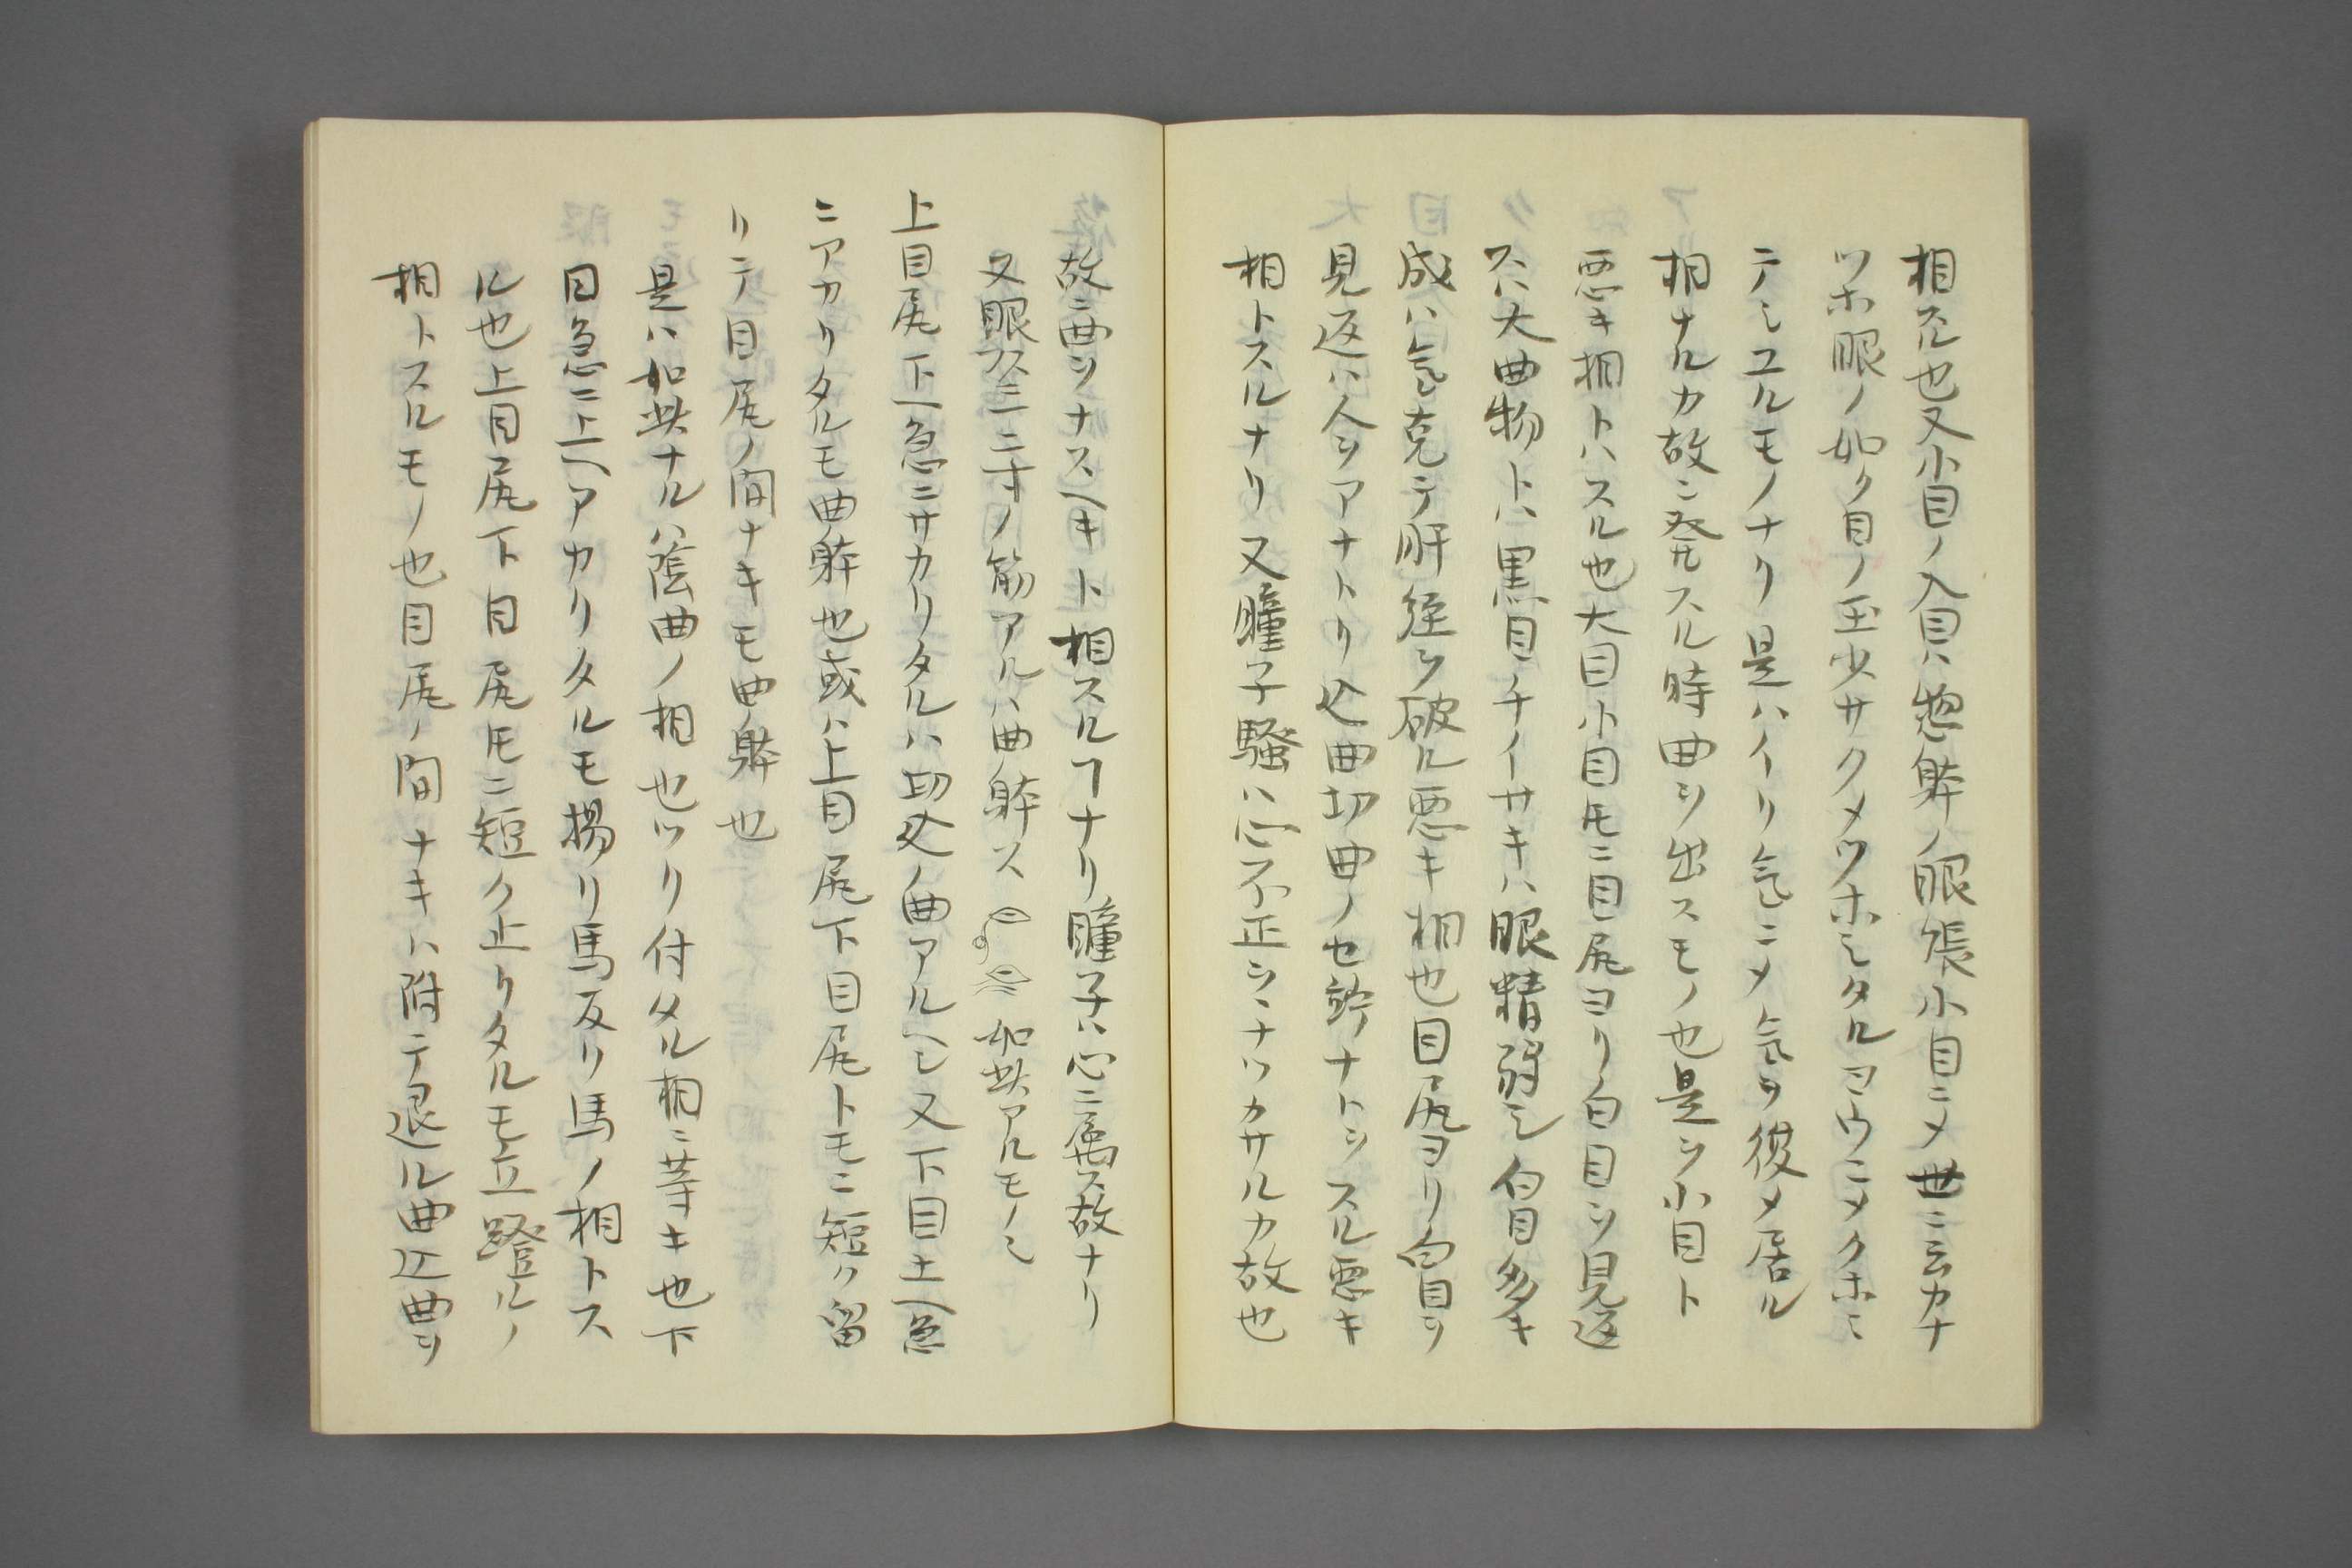 相スル也又小目ノ入目ハ惣躰ノ眼張小目ニメ世ニ云カナ
ツホ眼ノ如ク目ノ玉少サクメツホミタルヨウニメクホミ
テミユルモノナリ是ハイリ気ニメ気ヲ彼メ居ル
相ナルカ故ニ発スル時曲ヲ出スモノ也是ヲ小目ト
悪キ相トハスル也大目小目モニ目尻ヨリ白目ヲ見返
スハ大曲物トハ黒目チイサキハ眼精弱シ白目多キ
成ハ気克テ肝経ヲ破ル悪キ相也目尻ヨリ白目ヲ
見返ハ人ヲアナトリ込曲切曲ノセ Nナトヲスル悪キ
相トスルナリ又瞳子騒ハ心不正シナツカサルカ故也
故ニ曲ヲナスヘキト相スルヿナリ瞳子ハ心ニ属ス故ナリ
又眼尻ニ二才ノ筋アルハ曲躰ス 如此アルモノシ
上目尻下ヘ急ニサカリタルハ切込ノ曲アルヘシ又下目上ヘ急
ニアカリタルモ曲躰也或ハ上目尻下目尻トモニ短ク留
リテ目尻ノ間ナキモ曲ノ躰也
是ハ如此ナルハ蔭曲ノ相也ツリ付メル相ニ等キ也下
目急ニ上ヘアカリタルモ揚リ馬反リ馬ノ相トス
ル也上目尻下目尻モニ短ク止リタルモ立蹬ルノ
相トスルモノ也目尻ノ間ナキハ附テ退ル曲辷曲ヲ